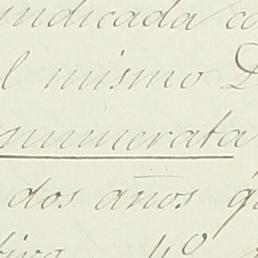 indicada co
l mismo D
numerata
dos anos q
tivo 4º